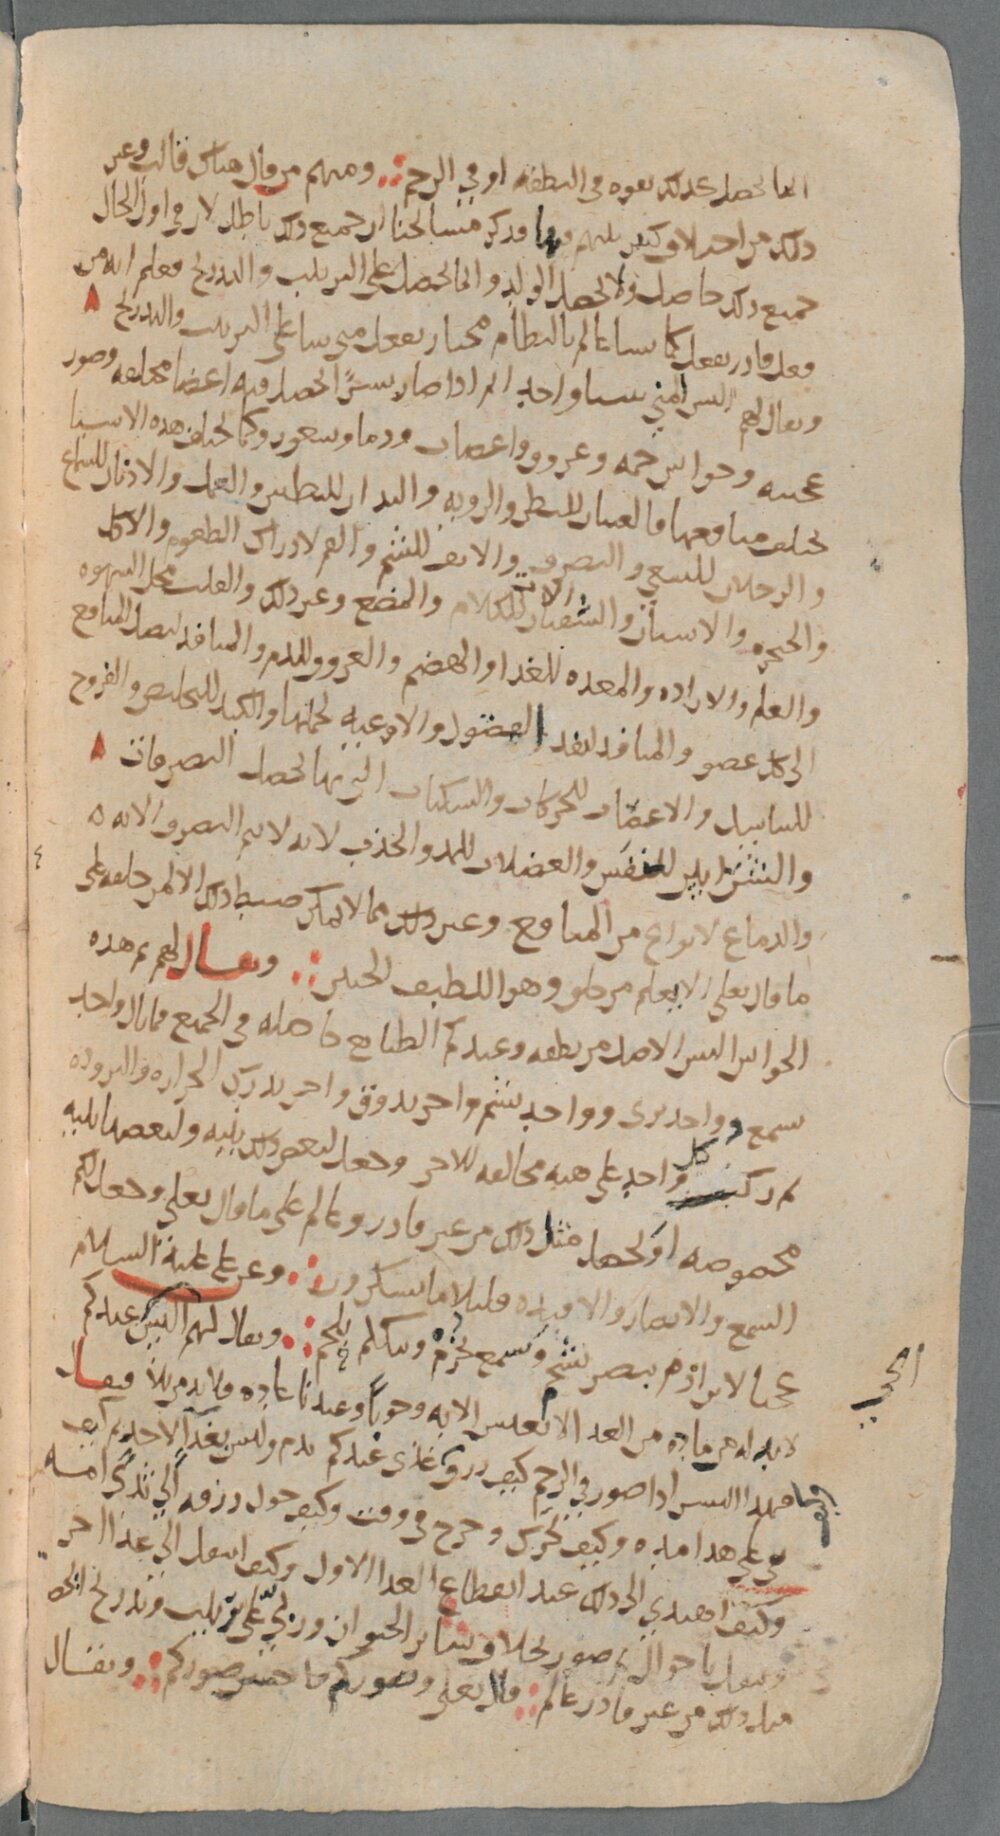 انما يحصل كذلك بقوه في النطفه او في الرحم ∴ ومنهم من قال هناك قالب وغير
ذلك من اختلاف كثير بينهم وبها قد ذكر مشايخنا ان جميع ذلك باطل لان في اول الحال
جميع ذلك حاصل ولا يحصل الولد وانما يحصل على الترتيب والتدريج فعلم انه من
فعل قادر يفعل كما يشا عالم بالنظام مختار يفعل متى شا على الترتيب والتدريج ∧
ويقال لهم اليس المني شيا واحدا ثم اذا صار بشرًا يحصل فيه اعضا مختلفه وصور
عجيبه وحواس خمسه وعروق واعصاب ودما وشعور وكما يختلف هذه الاشيا
يختلف منافعها فالعينان للنظر والرويه واليدان للبطش والعمل والاذنان للسماع
والرجلان للسعي والتصرف والانف للشم والفم لادراك الطعوم والاكل
والحنجره والاسنان والشفتان الات للكلام والمضغ وغير ذلك والقلب محل الشهوه
والعلم والاراده والمعده للغذا والهضم والعروق للدم والمنافذ ليصل المنافع
الى كل عضو والمنافذ لنفذ الفضول والاوعيه لحملها والكبد للتخليص والفروج
للتناسل والاعضا للحركات والسكنات التي بها تحصل التصرفات ∧
والشرايين للنفس والعضلات للمد والجذب لانه لا يتم التصرف الا به ه
والدماغ لانواع من المنافع وغير ذلك مما لا يمكن ضبط ذلك الا لمن خلقه على
ما قال تعالى الا يعلم من خلق وهو اللطيف الخبير ∴ ويقال لهم ثم هذه
الحواس اليس الاصل من نطفه وعندكم الطبايع حاصله في الجميع فما بال واحد
يسمع وواحد يرى وواحد يشم واخر يذوق واخر يدرك الحراره والبروده
ثم ركب كل واحد على هيه مخالفه للاخر وجعل لبعض ذلك بنيه ولبعضها بنيه
مخصوصه او يحصل مثل ذلك من غير قادر وعالم على ما قال تعالى وجعل لكم
السمع والابصار والافيده قليلا ما تشكرون ∴ وعن علي عليه السلام
عجبا لابن ادم يبصر بشحم ويسمع بخرم ويتكلم بلحم ∴ ويقال لهم اليس عندكم
لا بد له من ماده من الغذا لا يعيش الا به وجوبًا وعندنا عاده فلا بد من بلى فيقال
فهذا البشر اذا صور في الرحم كيف رزق غذى عندكم بدم وليس يغذا لاحد ثم كيف
بقي على هذا مده وكيف تحرك وخرج في وقت وكيف حول رزقه الى ثدي امه
وكيف اهتدي الى ذلك عند انقطاع الغذا الاول وكيف انتقل الى غذا اخر
وينقل باحوال ثم صور بخلاف سائر الحيوان وربي على ترتيب وتدريج ايحصل
مثل ذلك من غير قادر عالم ∴ قال تعالى وصوركم فاحسن صوركم ∴ ويقال